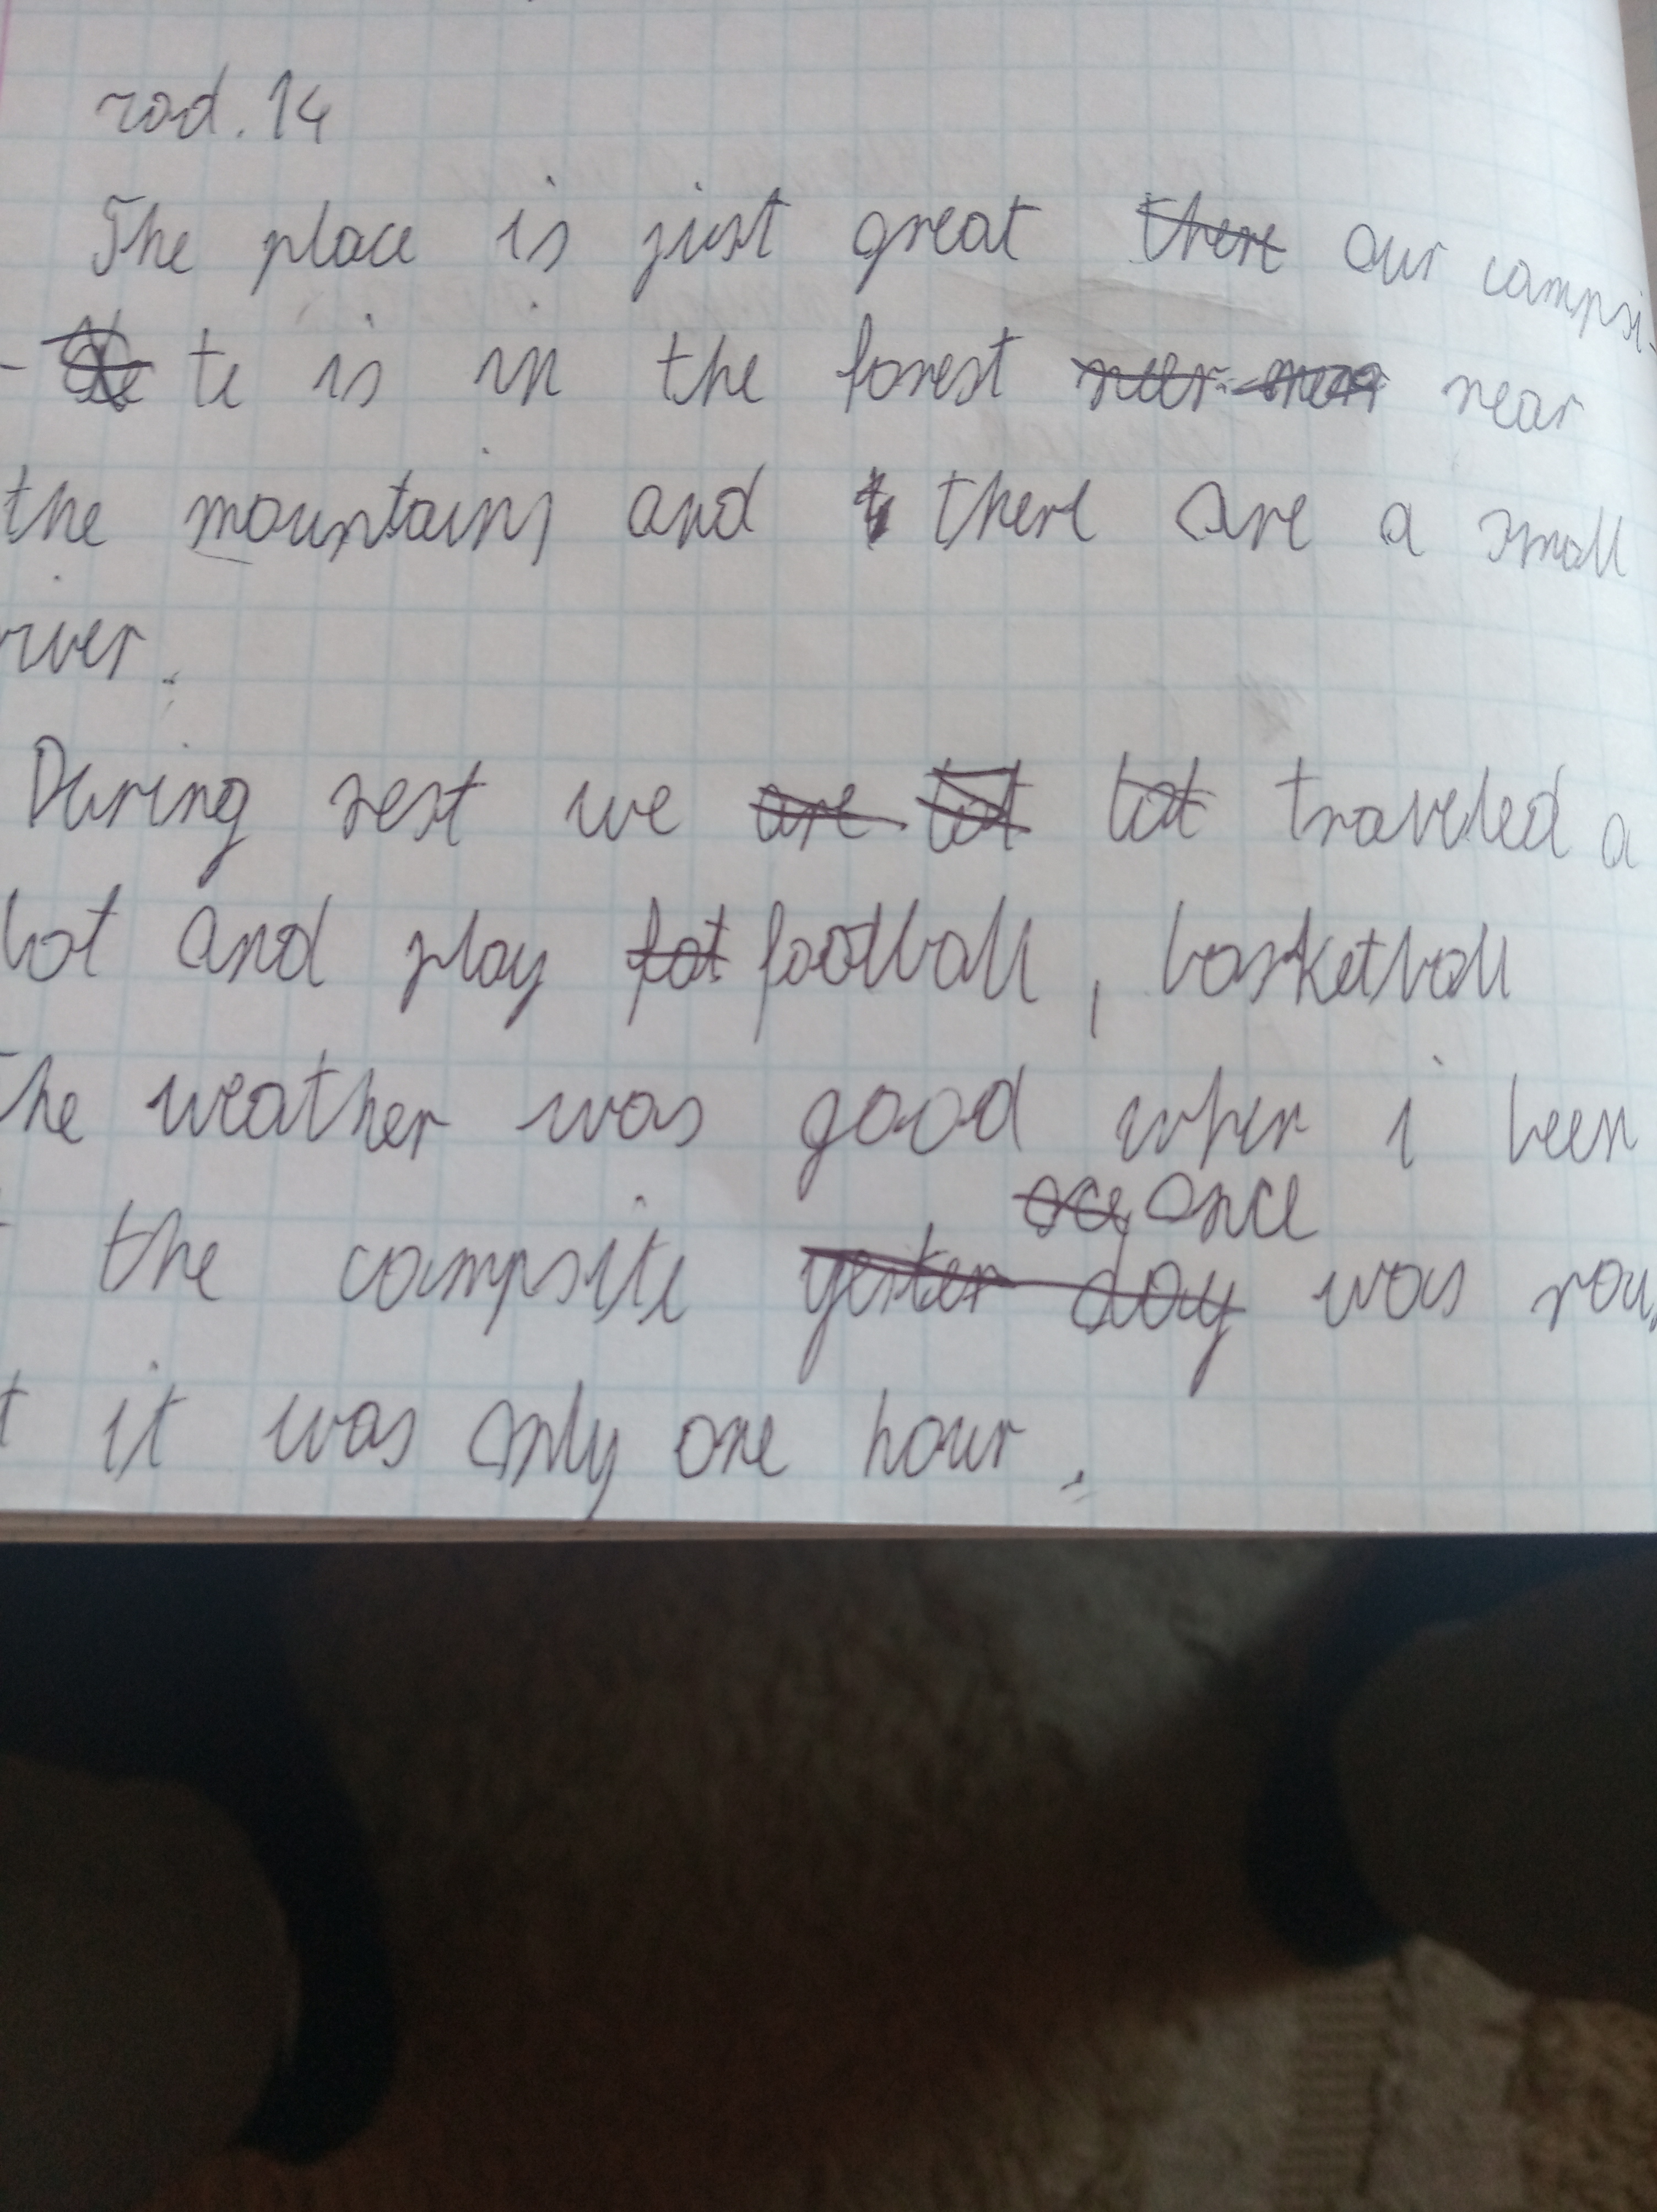 zad. 14
The place is just great there our campsi-
- te te is in the forest neer near near
the mountains and t there are a small
river.
During rest we are lot lot traveled a
lot and play fot football, basketball
The weather was good when i been
the campsite yester day oce once was
it was only one hour.